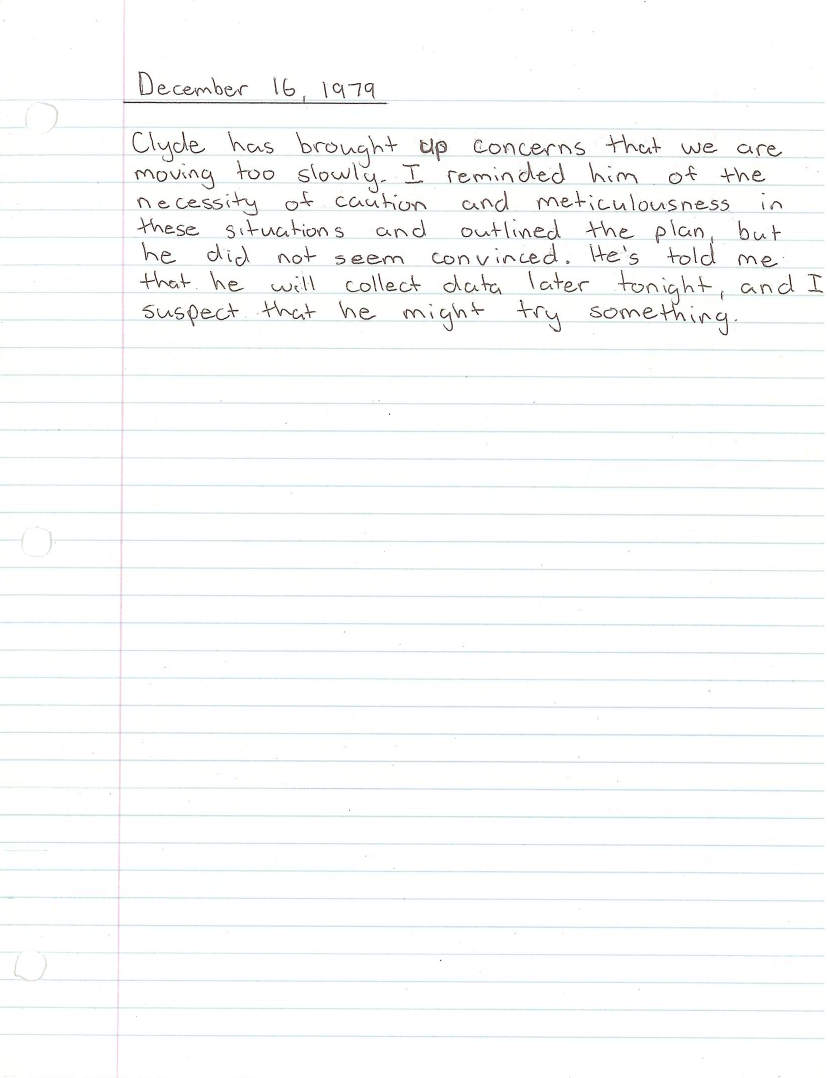 December 16, 1979
Clyde has brought up concerns that we are
moving too slowly. I reminded him of the
necessity of caution and meticulousness in
these situations and outlined the plan, but
he did not seem convinced. He's told me
that he will collect data later tonight, and I
suspect that he might try something.